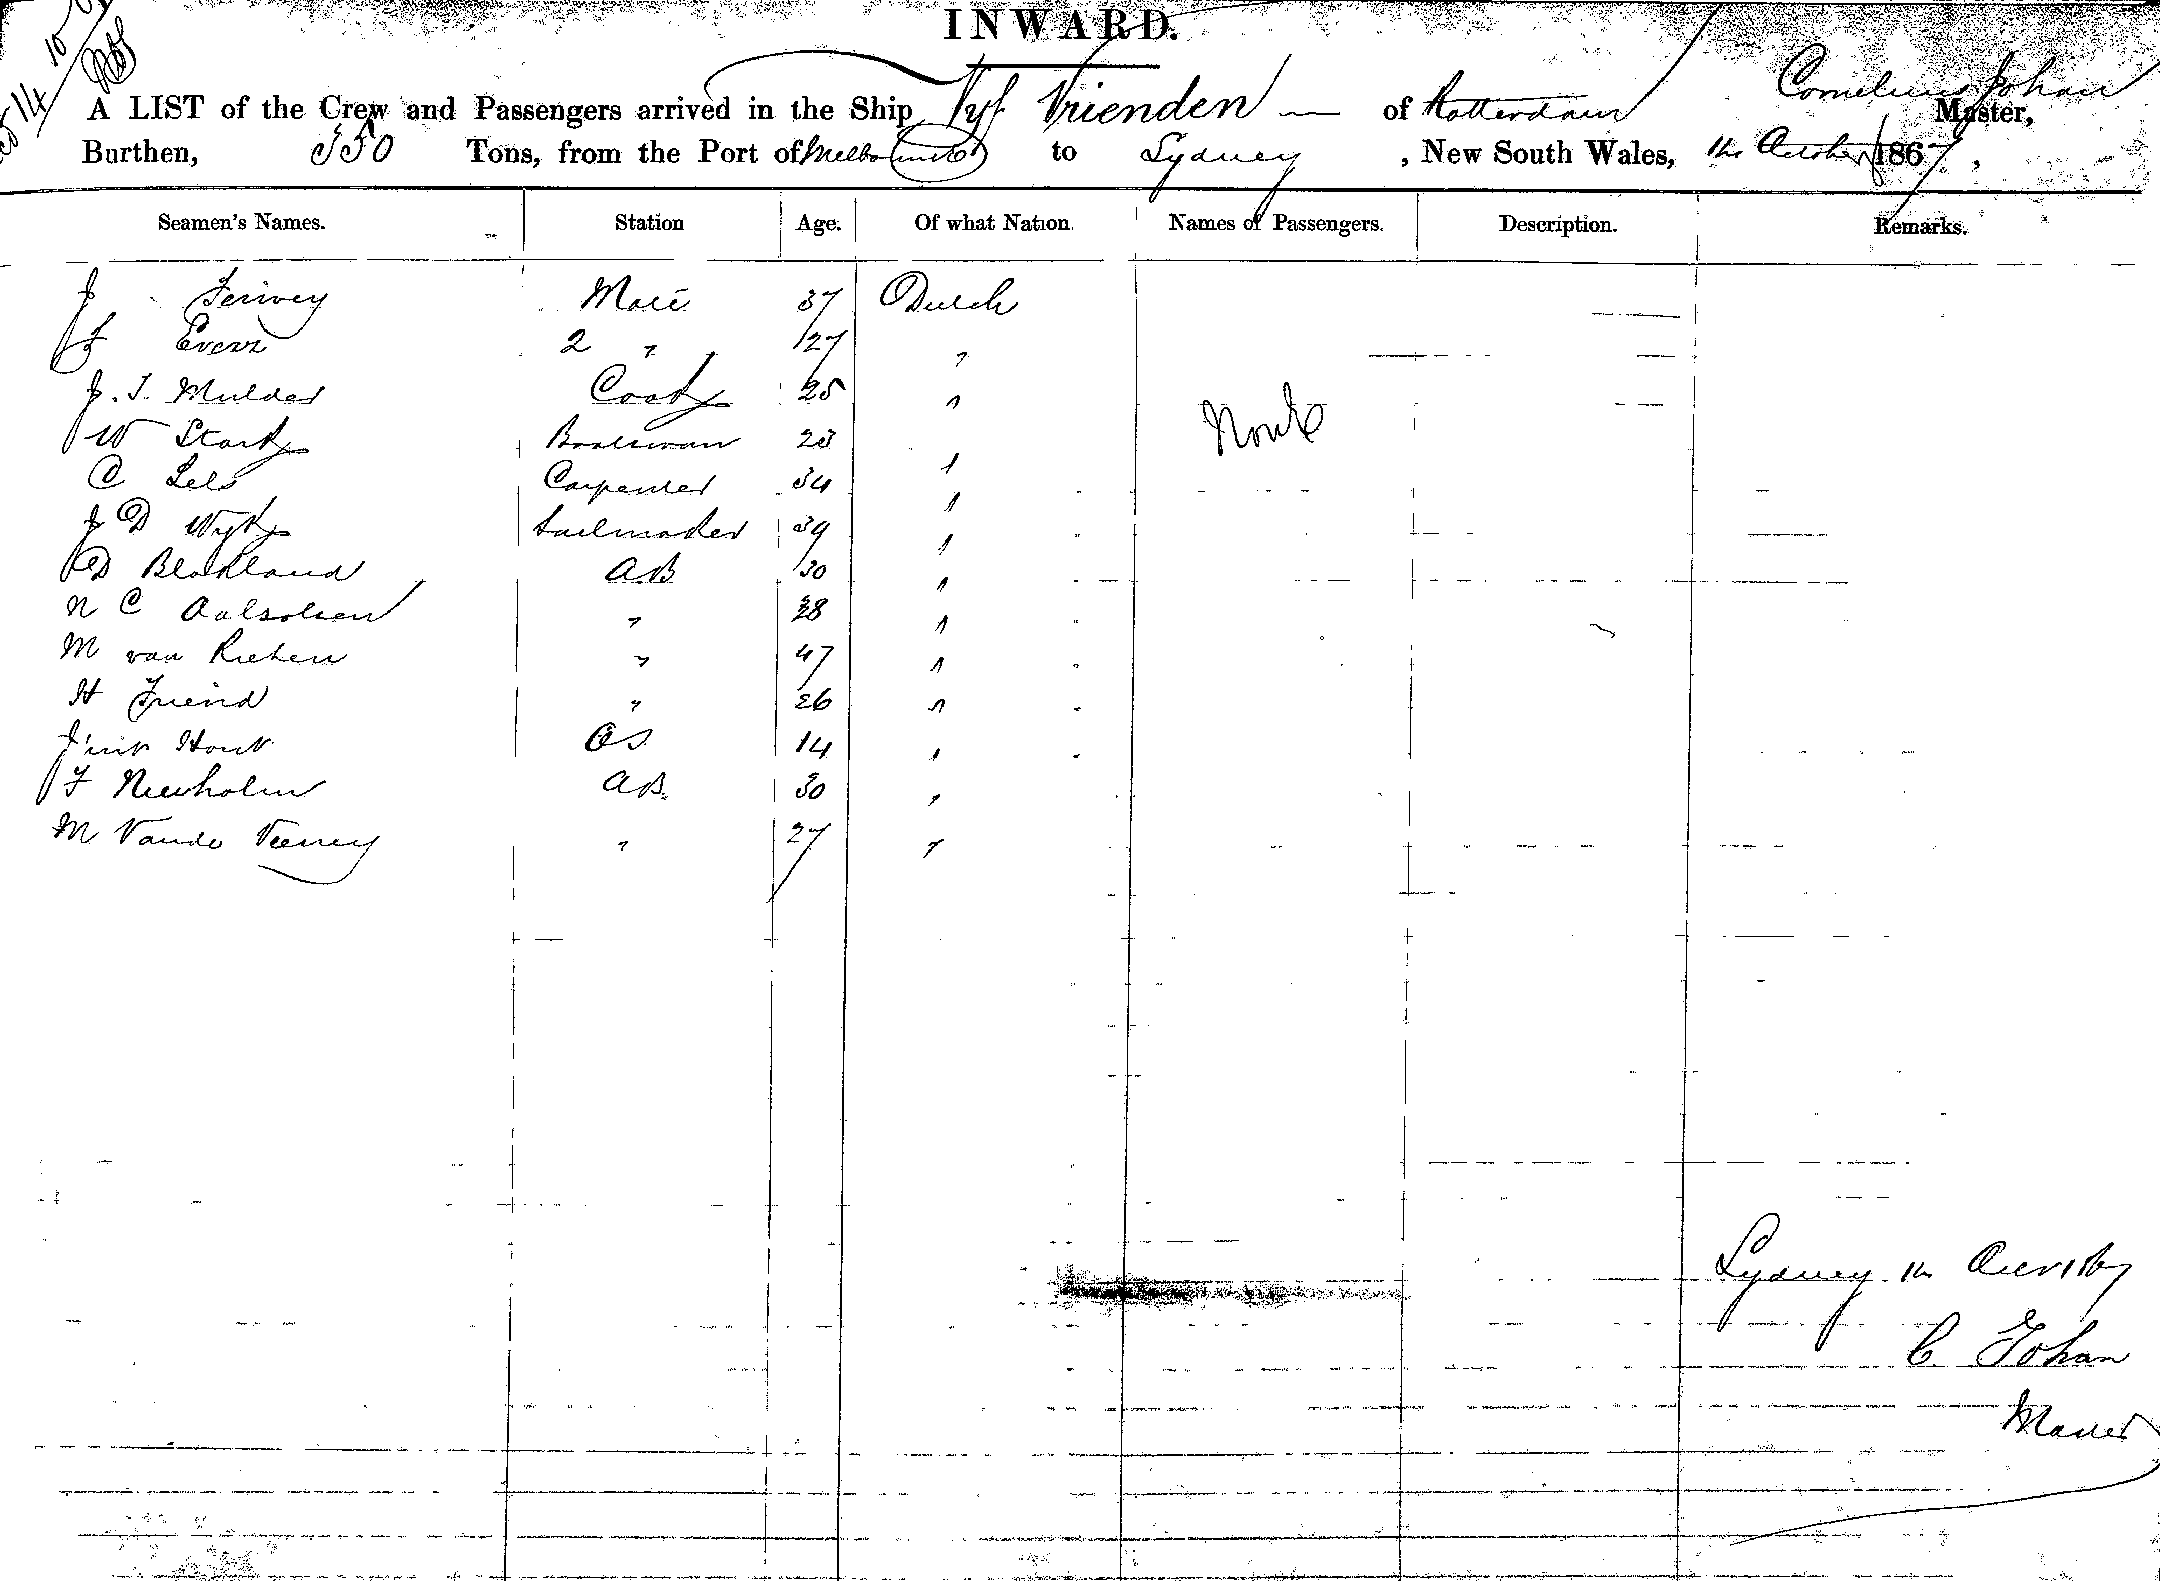 INWARD.
A LIST of the Crew and Passengers arrived in the Ship Vyf Vrienden of Rotterdam Cornelius Johan Master,
Burthen, 350 Tons, from the Port of Melbourne to Sydney, New South Wales, October 1867,
Seamen's Names. Station Age. Of what Nation. Names of Passengers. Description. Remarks.
J Mate 37 Dutch
J Evers 2 " 27 "
J. J. Mulder Cook 25 "
None
W Stark Boatswan "
C Lels Carpenter 34 "
J D Wyk Sailmaker 39 "
D Blokland AB 30 "
N C " 28 "
M van Riehen " 47 "
H Friend " 26 "
Hout OS 14 "
F Niewholm AB. 30 "
M Vande " 27 "
Sydney
C Johan
Master